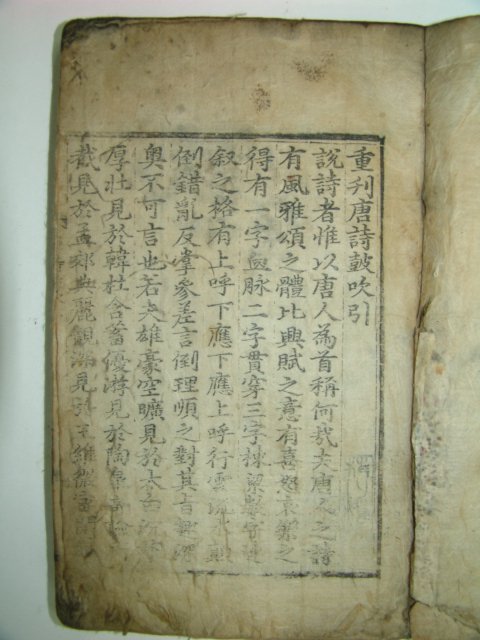 重刋唐詩鼓吹引
說詩者惟以唐人為首稱何㢤夫唐人之詩
有風雅頌之體比興賦之意有喜怒哀樂之
得有一字血脉二字貫穿三字棟梁數字連
叙之格有上呼下應下應上呼行雲流水
倒錯亂反掌參差言倒理順之對其旨
奧不可言也若夫雄豪空曠見於太白
厚壯見於韓杜含蓄優游見於陶韋
裁見於孟郊典麗觀深見於王維